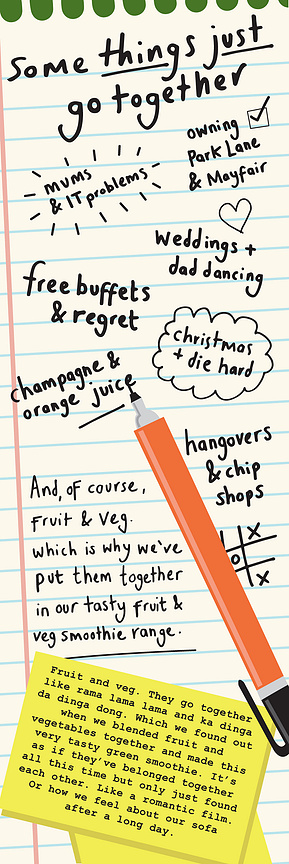 Some things just
go together
owning
Park Lane
& Mayfair
mums
& IT problems
Weddings +
dad dancing
free buffets
& regret
christmas
+ die hard
champagne &
orange juice
hangovers
& chip
shops
And, of course,
fruit & veg.
which is why we've
put them together
in our tasty fruit &
veg smoothie range.
X
O
X
Fruit and veg. They go together
like rama lama lama and ka dinga
da dinga dong. Which we found out
when we blended fruit and
vegetables together and made this
very tasty green smoothie. It's
as if they've belonged together
all this time but only just found
each other. Like a romantic film.
Or how we feel about our sofa
after a long day.